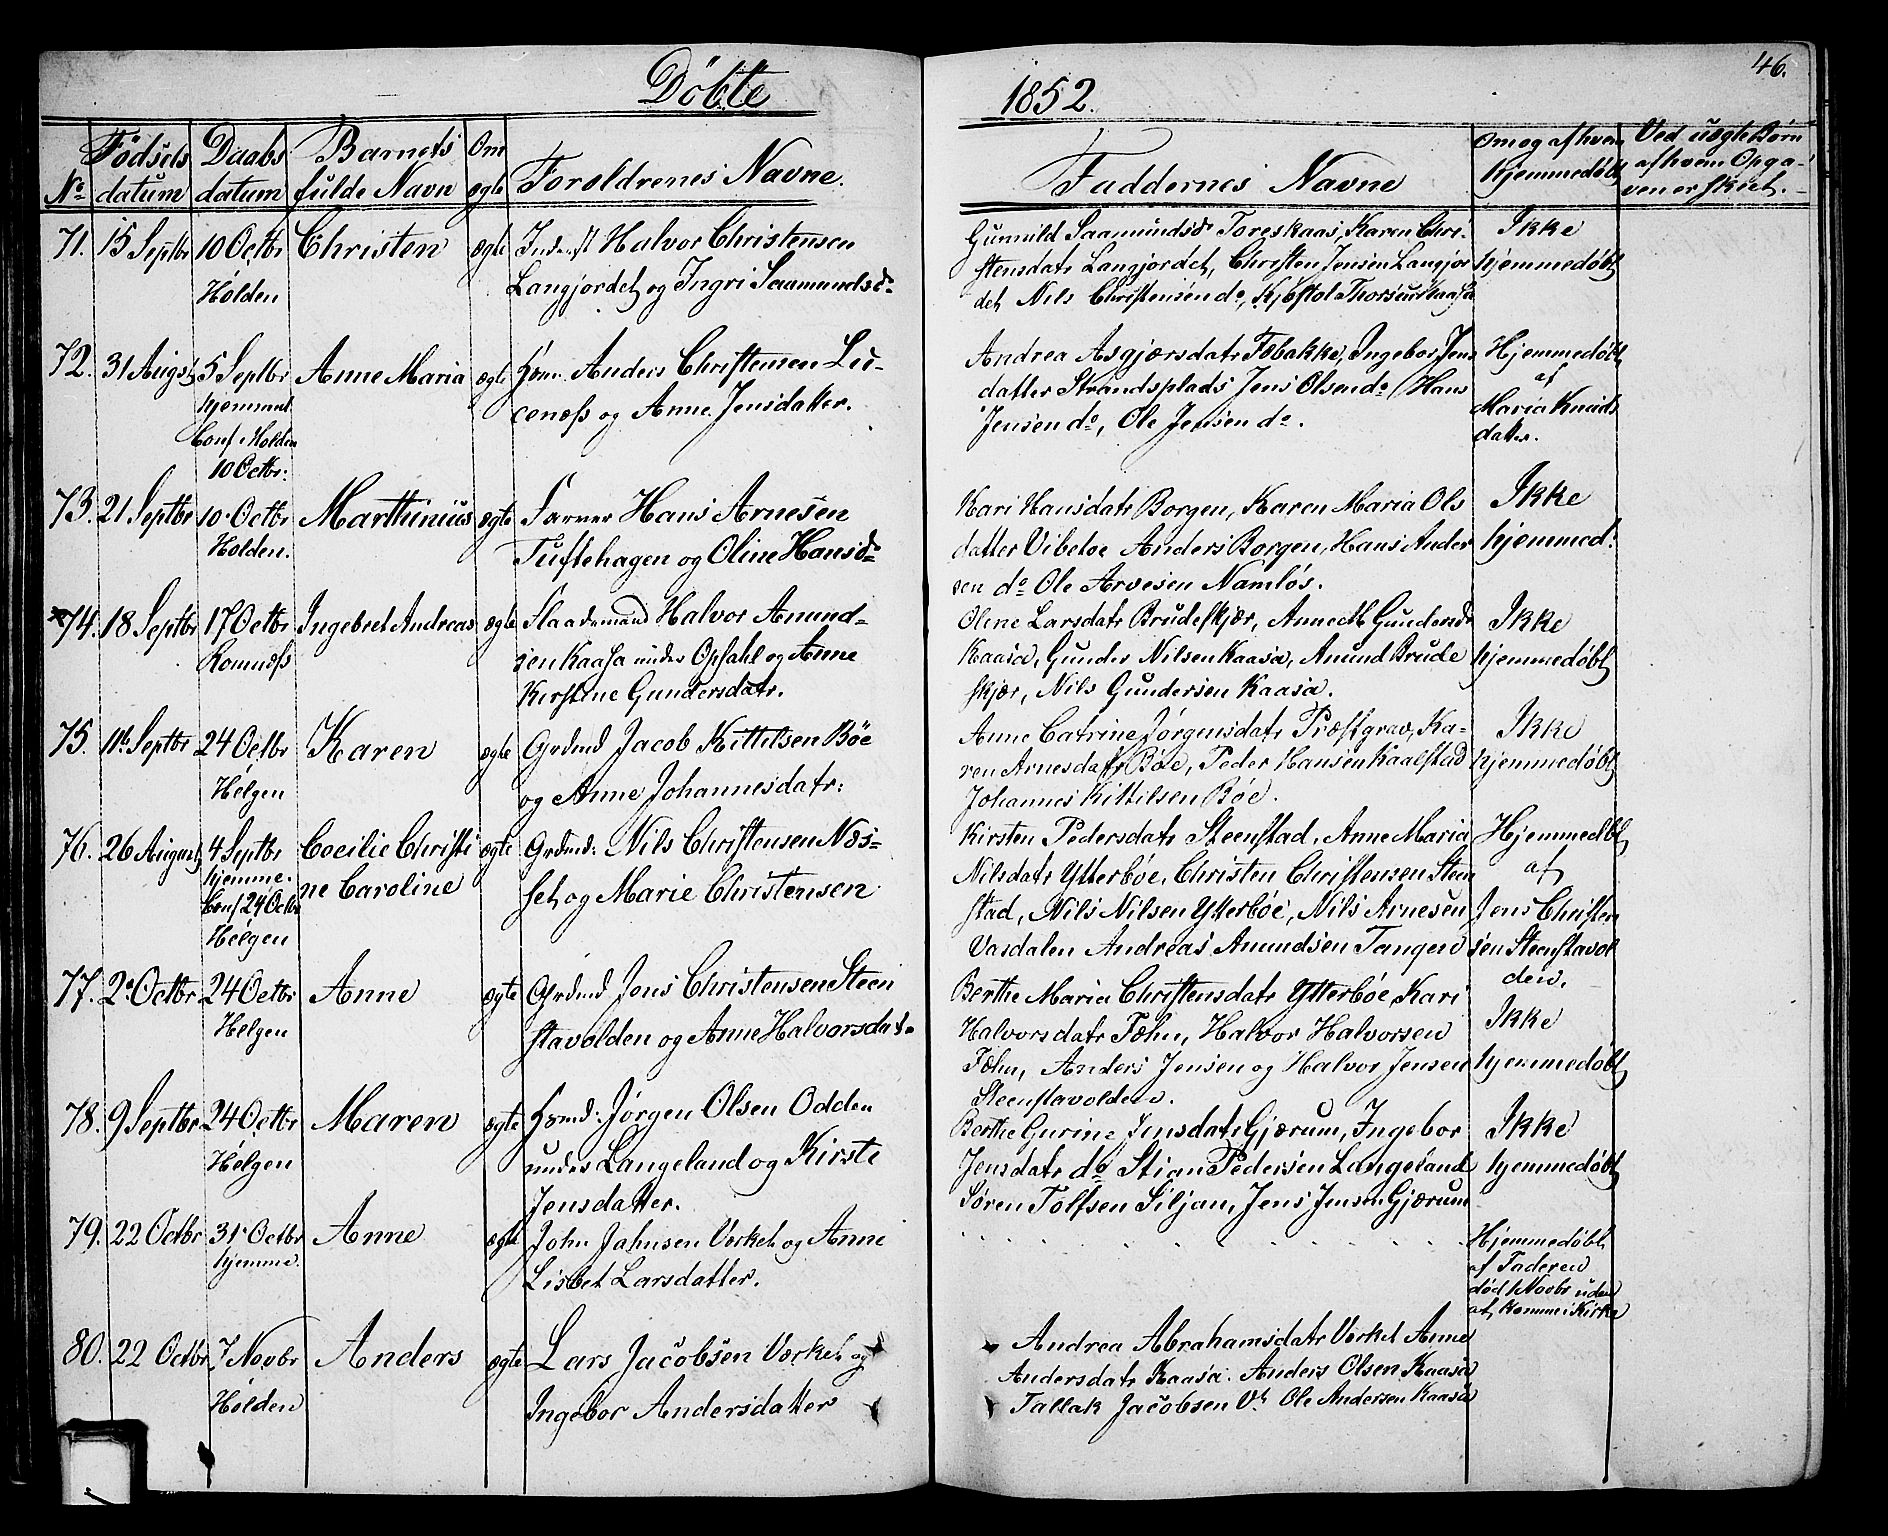 Döbte
1852.
46.
No Fødsels datum Daabs datum Barnets fulde Navn Om ægte Foroldrenes Navne. Faddernes Navne Om og af hvem hjemmedøbt Ved uægte Børn af hvem Opgaven er skeet.
71. 15 Septbr 10 Octbr Holden Christen ægte
Halvor Christensen
Langjordet og Ingri Saamundsd.
Gunnild Saamundsd. Toreskaas, Karen Chri-
stensdatr Langjordet, Christen Jensen Langjor
det Nils Christensen do, Kjøstol Thorsen Kaasa
Ikke
hjemmedøbt
72. 31 August 5 Septbr hjemme Conf Holden 10 Octbr: Anne Maria ægte
Hmd. Anders Christensen Lu-
cenæss og Anne Jensdatter.
Andrea Asgjærsdatr Tæbakke, Ingebor Jens
datter Strandsplads Jens Olsen do Hans
Jensen do, Ole Jensen do.
Hjemmedøbt
af
Maria Knuds
datter.
73. 21 Septbr 10 Octbr Holden. Marthinius ægte
Farver Hans Arnesen
Tuftehagen og Oline Hansd.
Kari Hansdatr Borgen, Karen Maria Ols
datter Vibetoe Anders Borgen, Hans Ander
sen do Ole Arvesen Namløs.
Ikke
hjemmed:
74. 18 Septbr 17 Octbr Romnæss Ingebret Andreas ægte
Plaadsmand Halvor Amund-
sen Kaasa under Opsahl og Anne
Kirstine Gundersdatr.
Oline Larsdatr Brudeskjær, Anne M Gundersd
Kaasa, Gunder Nilsen Kaasa, Amund Brude
skjær, Nils Gundersen Kaasa.
Ikke
hjemmedøbt
75. 11te Septbr 24 Octbr Helgen Karen ægte
Grdmd Jacob Kittilsen Bøe
og Anne Johannesdatr:
Anne Catrine Jørgensdatr Præstgrav, Ka-
ren Arnesdatr Bøe, Peder Hansen Kaalstad
Johannes Kittilsen Bøe.
Ikke
hjemmedøbt
76. 26 August 4 Septbr hjemme. Conf 24 Octbr Helgen Coecilie Christi
ne Caroline ægte
Grdmd: Nils Christensen Næs-
set og Marie Christensen
Kirsten Pedersdatr Steenstad, Anne Maria
Nilsdatr Ytterbøe, Christen Christensen Steen
stad, Nils Nilsen Ytterbøe, Nils Arnesen
Vasdalen Andreas Amundsen Tangen
Hjemmedøbt
af
Jens Christen
sen Steenstavol
den.
77. 2 Octbr 24 Octbr Helgen Anne ægte
Grdmd Jens Christensen Steen
stavolden og Anne Halvorsdatr
Berthe Maria Christensdatr Ytterbøe, Kari
Halvorsdatr Fæhn, Halvor Halvorsen
Fæhn, Anders Jensen og Halvor Jensen
Steenstavolden.
Ikke
hjemmedøbt
78. 9 Septbr 24 Octbr Helgen Maren ægte
Hsmd: Jørgen Olsen Odden
under Langeland og Kirste
Jensdatter.
Berthe Gurine Jensdatr Gjærum, Ingebor
Jensdatr do Stian Pedersen Langeland
Søren Tolfsen Siljan, Jens Jensen Gjærum
Ikke
hjemmedøbt
79. 22 Octbr 31 Octbr hjemme Anne ægte
John Jahnsen Værket og Anne
Lisbet Larsdatter.
Hjemmedøbt
af Faderen
død 1 Novbr uden
at komme i Kirke
80. 22 Octbr 7 Novbr Holden Anders ægte
Lars Jacobsen Værket og
Ingebor Andersdatter
Andrea Abrahamsdatr Værket Anne
Andersdatr Kaasa. Anders Olsen Kaasa
Tallak Jacobsen Vk Ole Andersen Kaasa